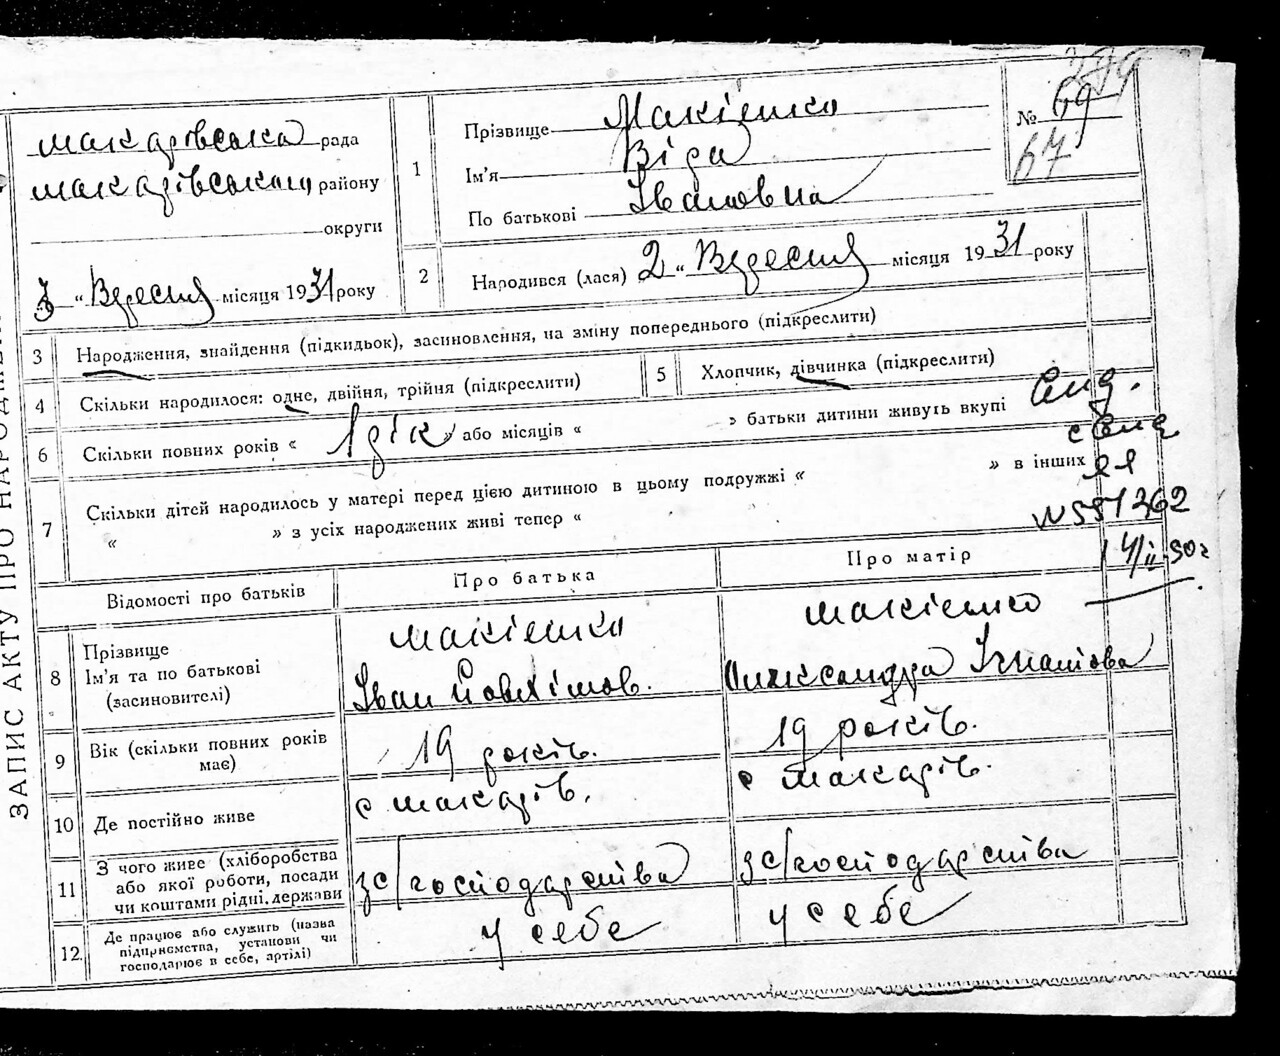 ЗАПИС АКТУ ПРО НАРОДЖЕН
299
№ 69
67
Макарівська рада
Макарівського району
округи
3 „ Вересня місяця 1931 року
1
Прізвище Макієнко
Ім'я Віра
По батькові Івановна
2
Народився (лася) 2 „ Вересня місяця 1931 року
3 Народження, знайдення (підкидьок), засиновлення, на зміну попереднього (підкреслити)
4 Скільки народилося: одне, двійня, трійня (підкреслити)
5 Хлопчик, дівчинка (підкреслити)
6 Скільки повних років « 1 рік » або місяців « » батьки дитини живуть вкупі
7 Скільки дітей народилось у матері перед цією дитиною в цьому подружжі « » в інших
« » з усіх народжених живі тепер «
№ 551362
14/II-90г
Відомості про батьків
Про батька
Про матір
8 Прізвище
Ім'я та по батькові
(засиновителі)
Макієнко
Іван Йовхімов.
Макієнко
Олександра Ігнатова
9 Вік (скільки повних років має)
19 років.
19 років.
10 Де постійно живе
с Макарів.
с Макарів.
11 З чого живе (хліборобства
або якої роботи, посади
чи коштами рідні, держави
з с/господарства
з с/господарства
12 Де працює або служить (назва
підприємства, установи чи
господарює в себе, артілі)
у себе
у себе